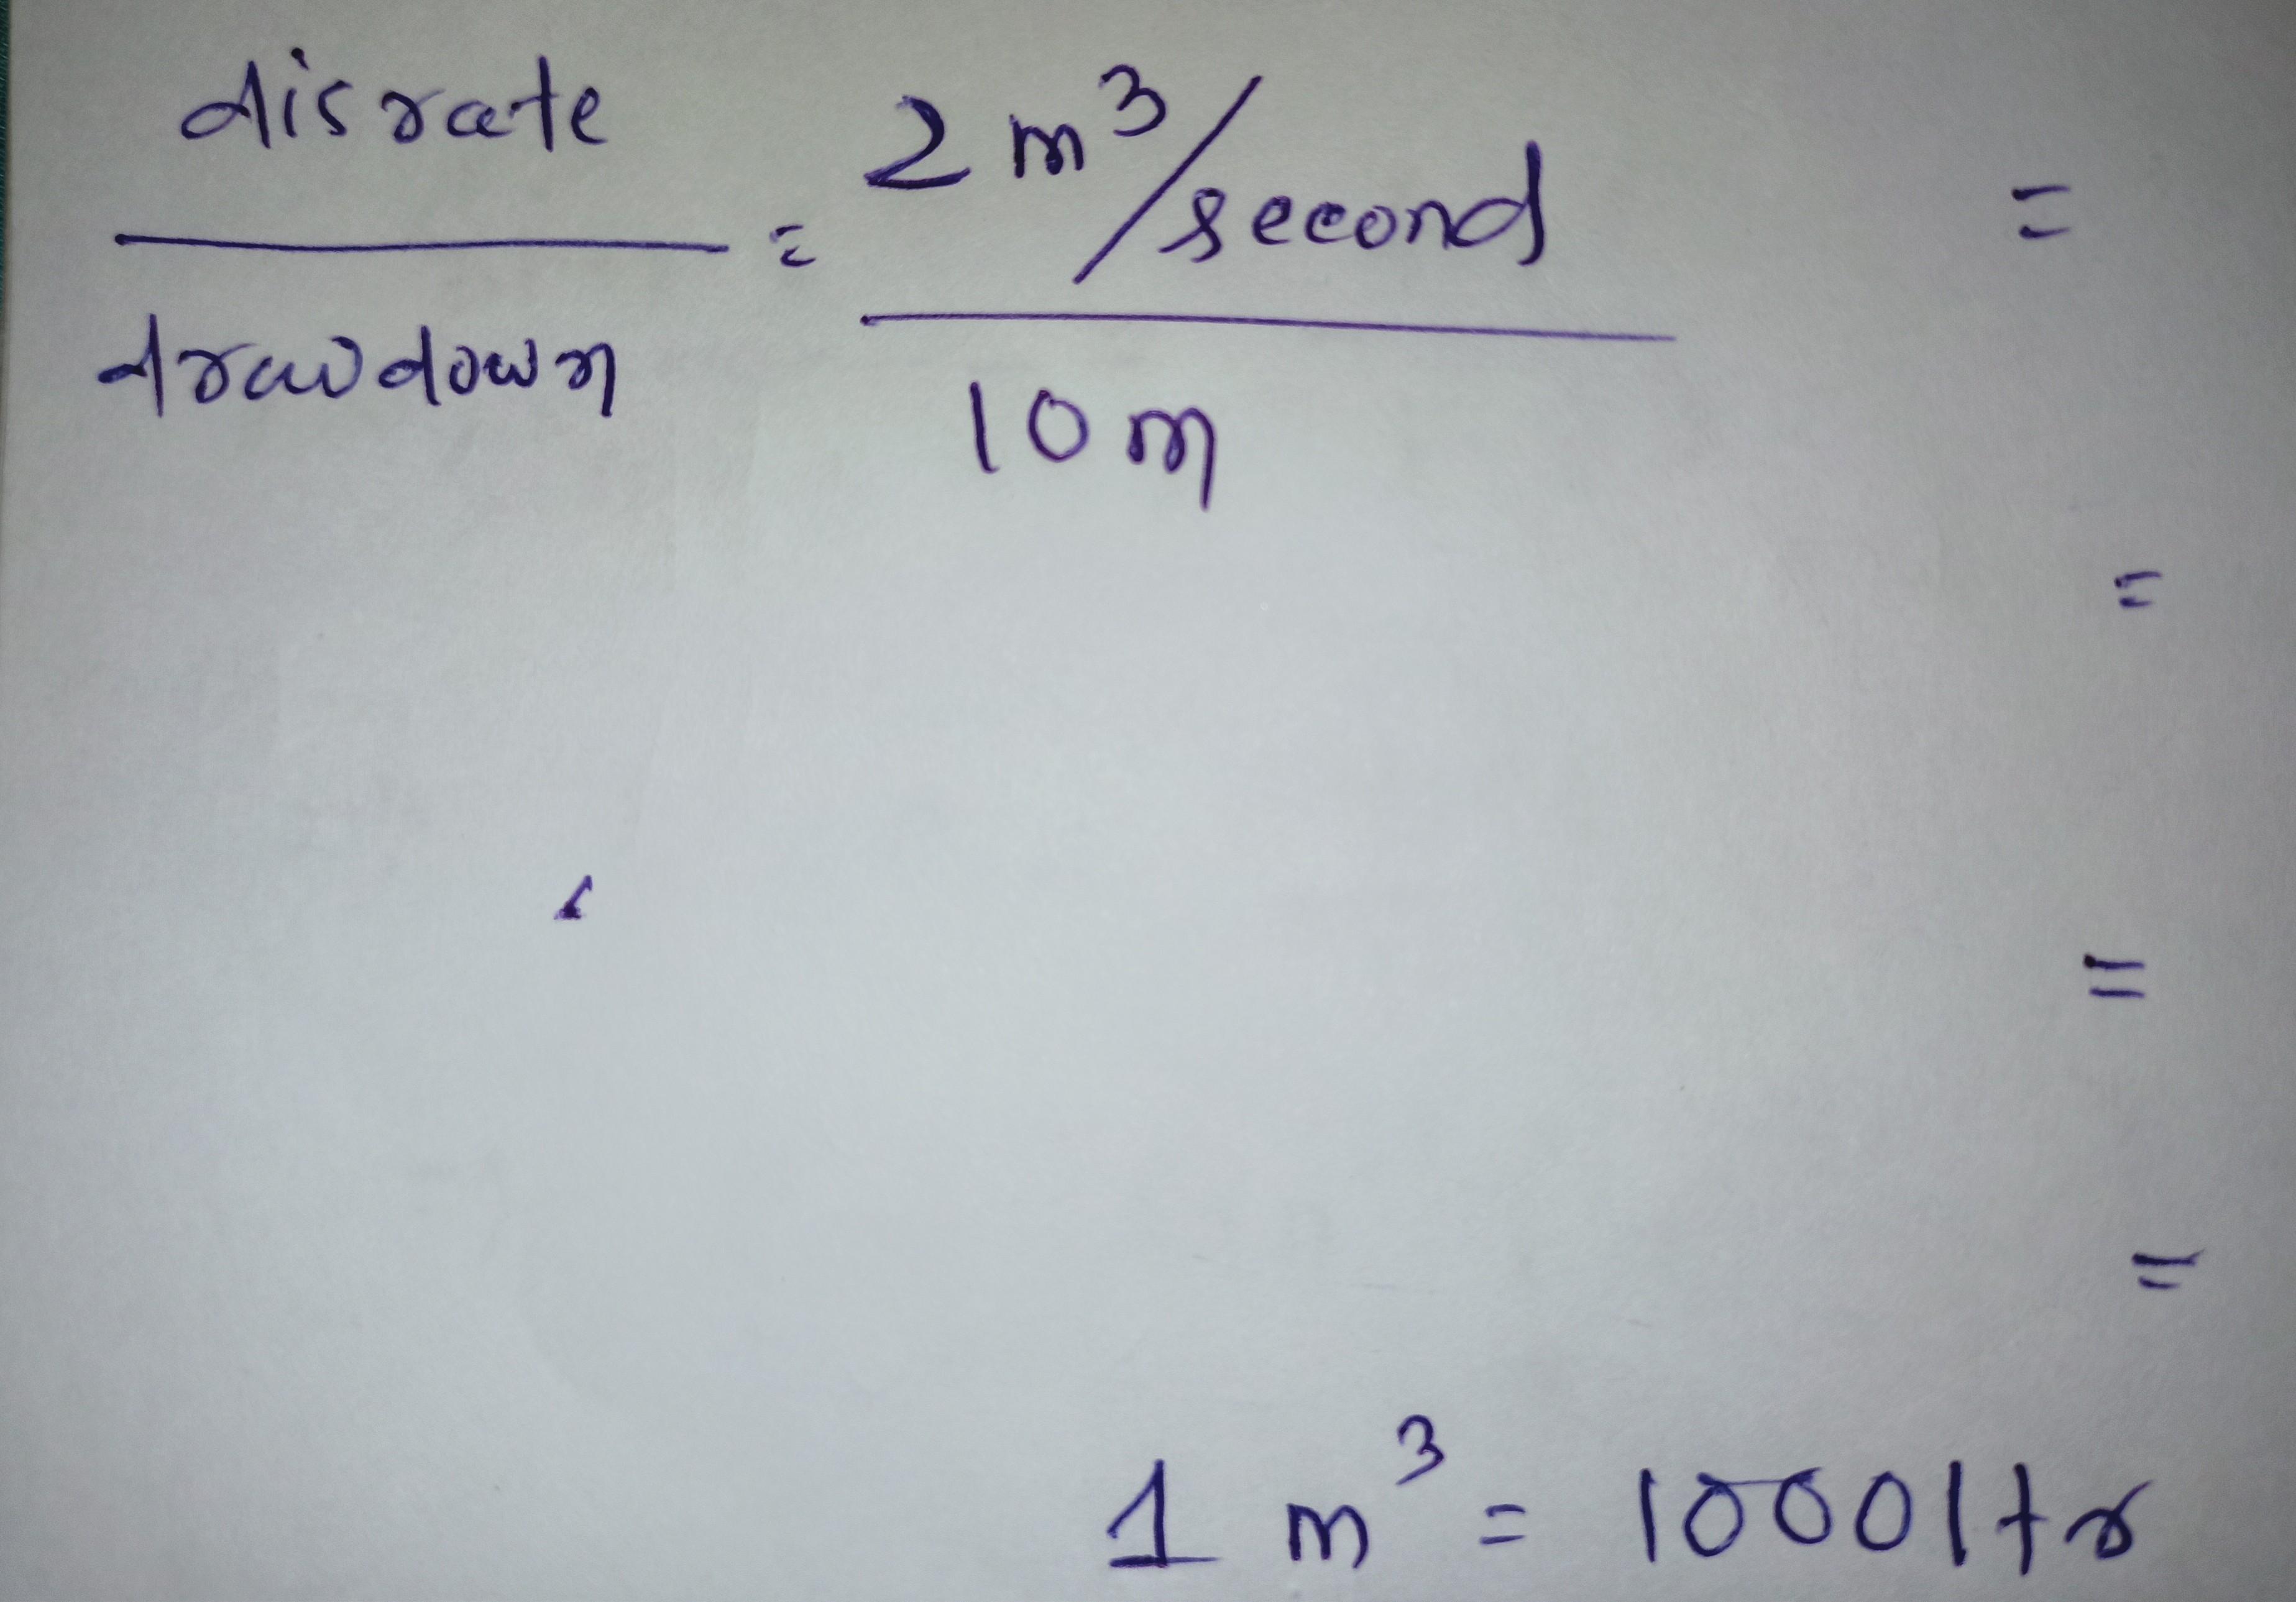 disrate
drawdown
= 2 m³/second
10 m
=
=
=
=
1 m³ = 1000 ltr